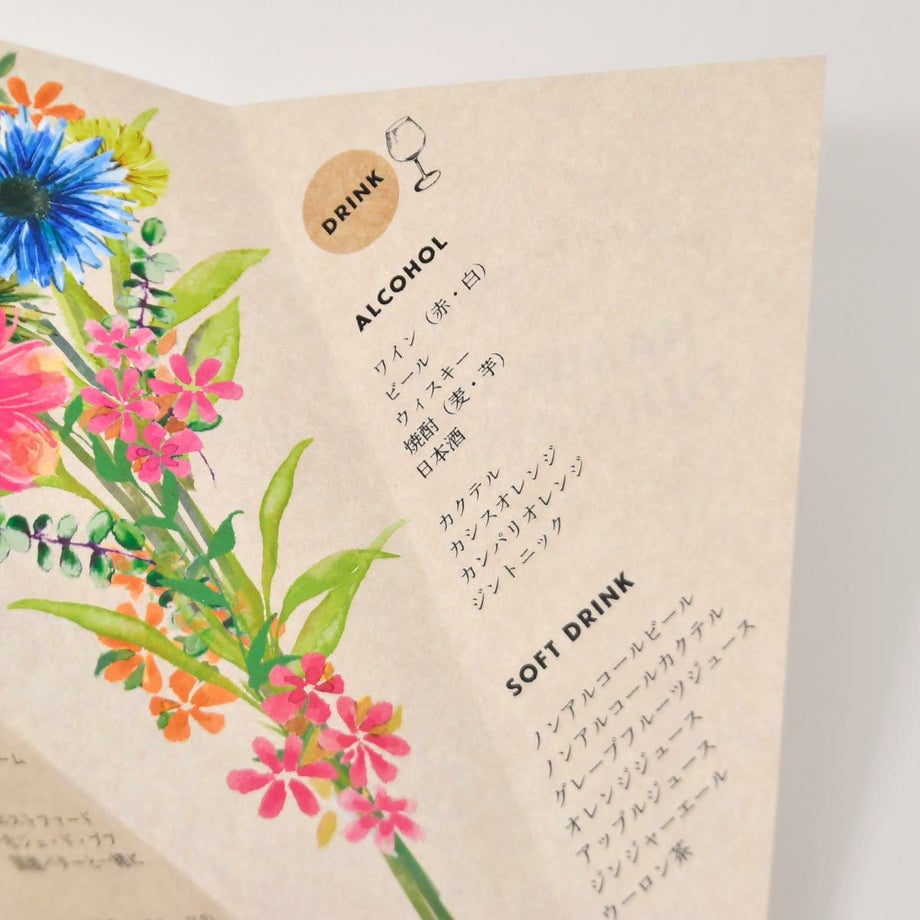 DRINK
ALCOHOL
ワイン（赤・白）
ビール
ウィスキー
焼酎（麦・芋）
日本酒
カクテル
カシスオレンジ
カンパリオレンジ
ジントニック
SOFT DRINK
ノンアルコールビール
ノンアルコールカクテル
グレープフルーツジュース
オレンジジュース
アップルジュース
ジンジャーエール
ウーロン茶